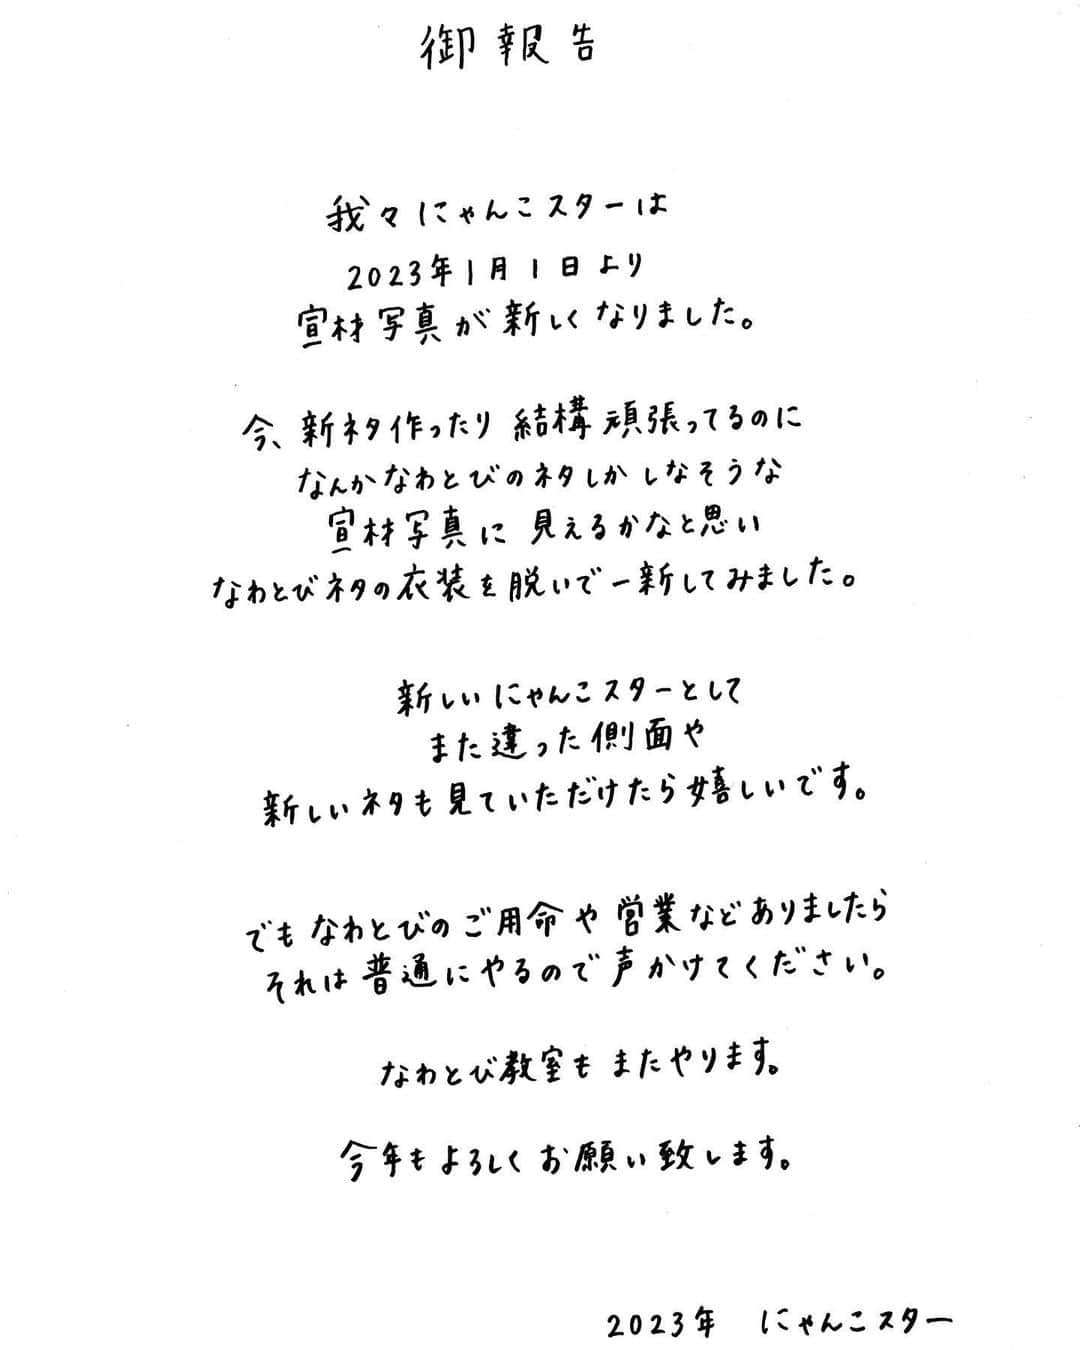 御報告
我々にゃんこスターは
2023年1月1日より
宣材写真が新しくなりました。
今、新ネタ作ったり結構頑張ってるのに
なんかなわとびのネタしかしなそうな
宣材写真に見えるかなと思い
なわとびネタの衣装を脱いで一新してみました。
新しいにゃんこスターとして
また違った側面や
新しいネタも見ていただけたら嬉しいです。
でもなわとびのご用命や営業などありましたら
それは普通にやるので声かけてください。
なわとび教室もまたやります。
今年もよろしくお願い致します。
2023年 にゃんこスター